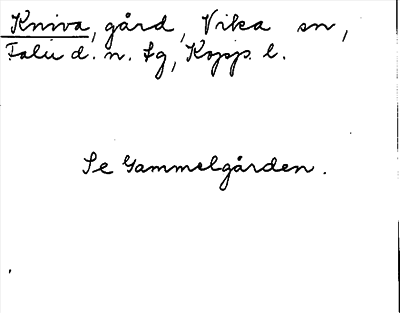 Kniva, gård, Vika sn,
Falu d. n. tg, Kopp. l.
Se Gammelgården.